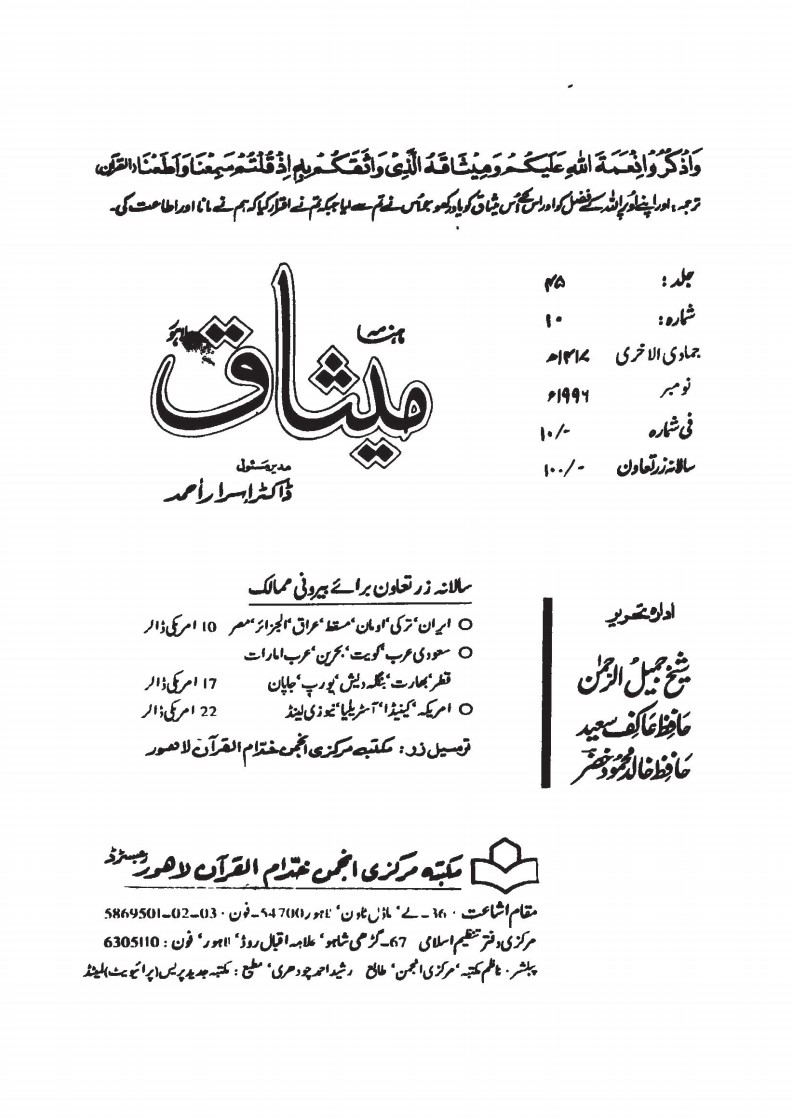 وَاذْكُرُوا نِعْمَةَ اللّٰهِ عَلَيْكُمْ وَمِيْثَاقَهُ الَّذِي وَاثَقَكُمْ بِهٖ اِذْ قُلْتُمْ سَمِعْنَا وَاَطَعْنَا (القرآن)
ترجمہ: اور اپنے اوپر اللہ کے فضل کو اور اس کے اُس میثاق کو یاد رکھو جو اُس نے تم سے لیا جبکہ تم نے اقرار کیا کہ ہم نے مانا اور اطاعت کی۔
جلد: ۴۵
شمارہ: ۱۰
جمادی الاخریٰ ۱۴۱۷ھ
نومبر ۱۹۹۶ء
فی شمارہ ۱۰/-
سالانہ زر تعاون ۱۰۰/-
لاہور
میثاق
مدیر مسئول
ڈاکٹر اسرار احمد
ادارہ تحریر
شیخ جمیل الرحمٰن
حافظ عاکف سعید
حافظ خالد محمود خضر
سالانہ زر تعاون برائے بیرونی ممالک
○ ایران، ترکی، اومان، مسقط، عراق، الجزائر، مصر 10 امریکی ڈالر
○ سعودی عرب، کویت، بحرین، عرب امارات
قطر، بھارت، بنگلہ دیش، یورپ، جاپان 17 امریکی ڈالر
○ امریکہ، کینیڈا، آسٹریلیا، نیوزی لینڈ 22 امریکی ڈالر
ترسیل زر: مکتبہ مرکزی انجمن خدّام القرآن لاھور
مکتبہ مرکزی انجمن خدّام القرآن لاھور رجسٹرڈ
مقام اشاعت: 36۔کے، ماڈل ٹاؤن، لاہور 54700۔فون: 03-02-5869501
مرکزی دفتر تنظیم اسلامی: 67۔گڑھی شاہو، علامہ اقبال روڈ، لاہور، فون: 6305110
پبلشر: ناظم مکتبہ، مرکزی انجمن، طابع: رشید احمد چودھری، مطبع: مکتبہ جدید پریس (پرائیویٹ) لمیٹڈ